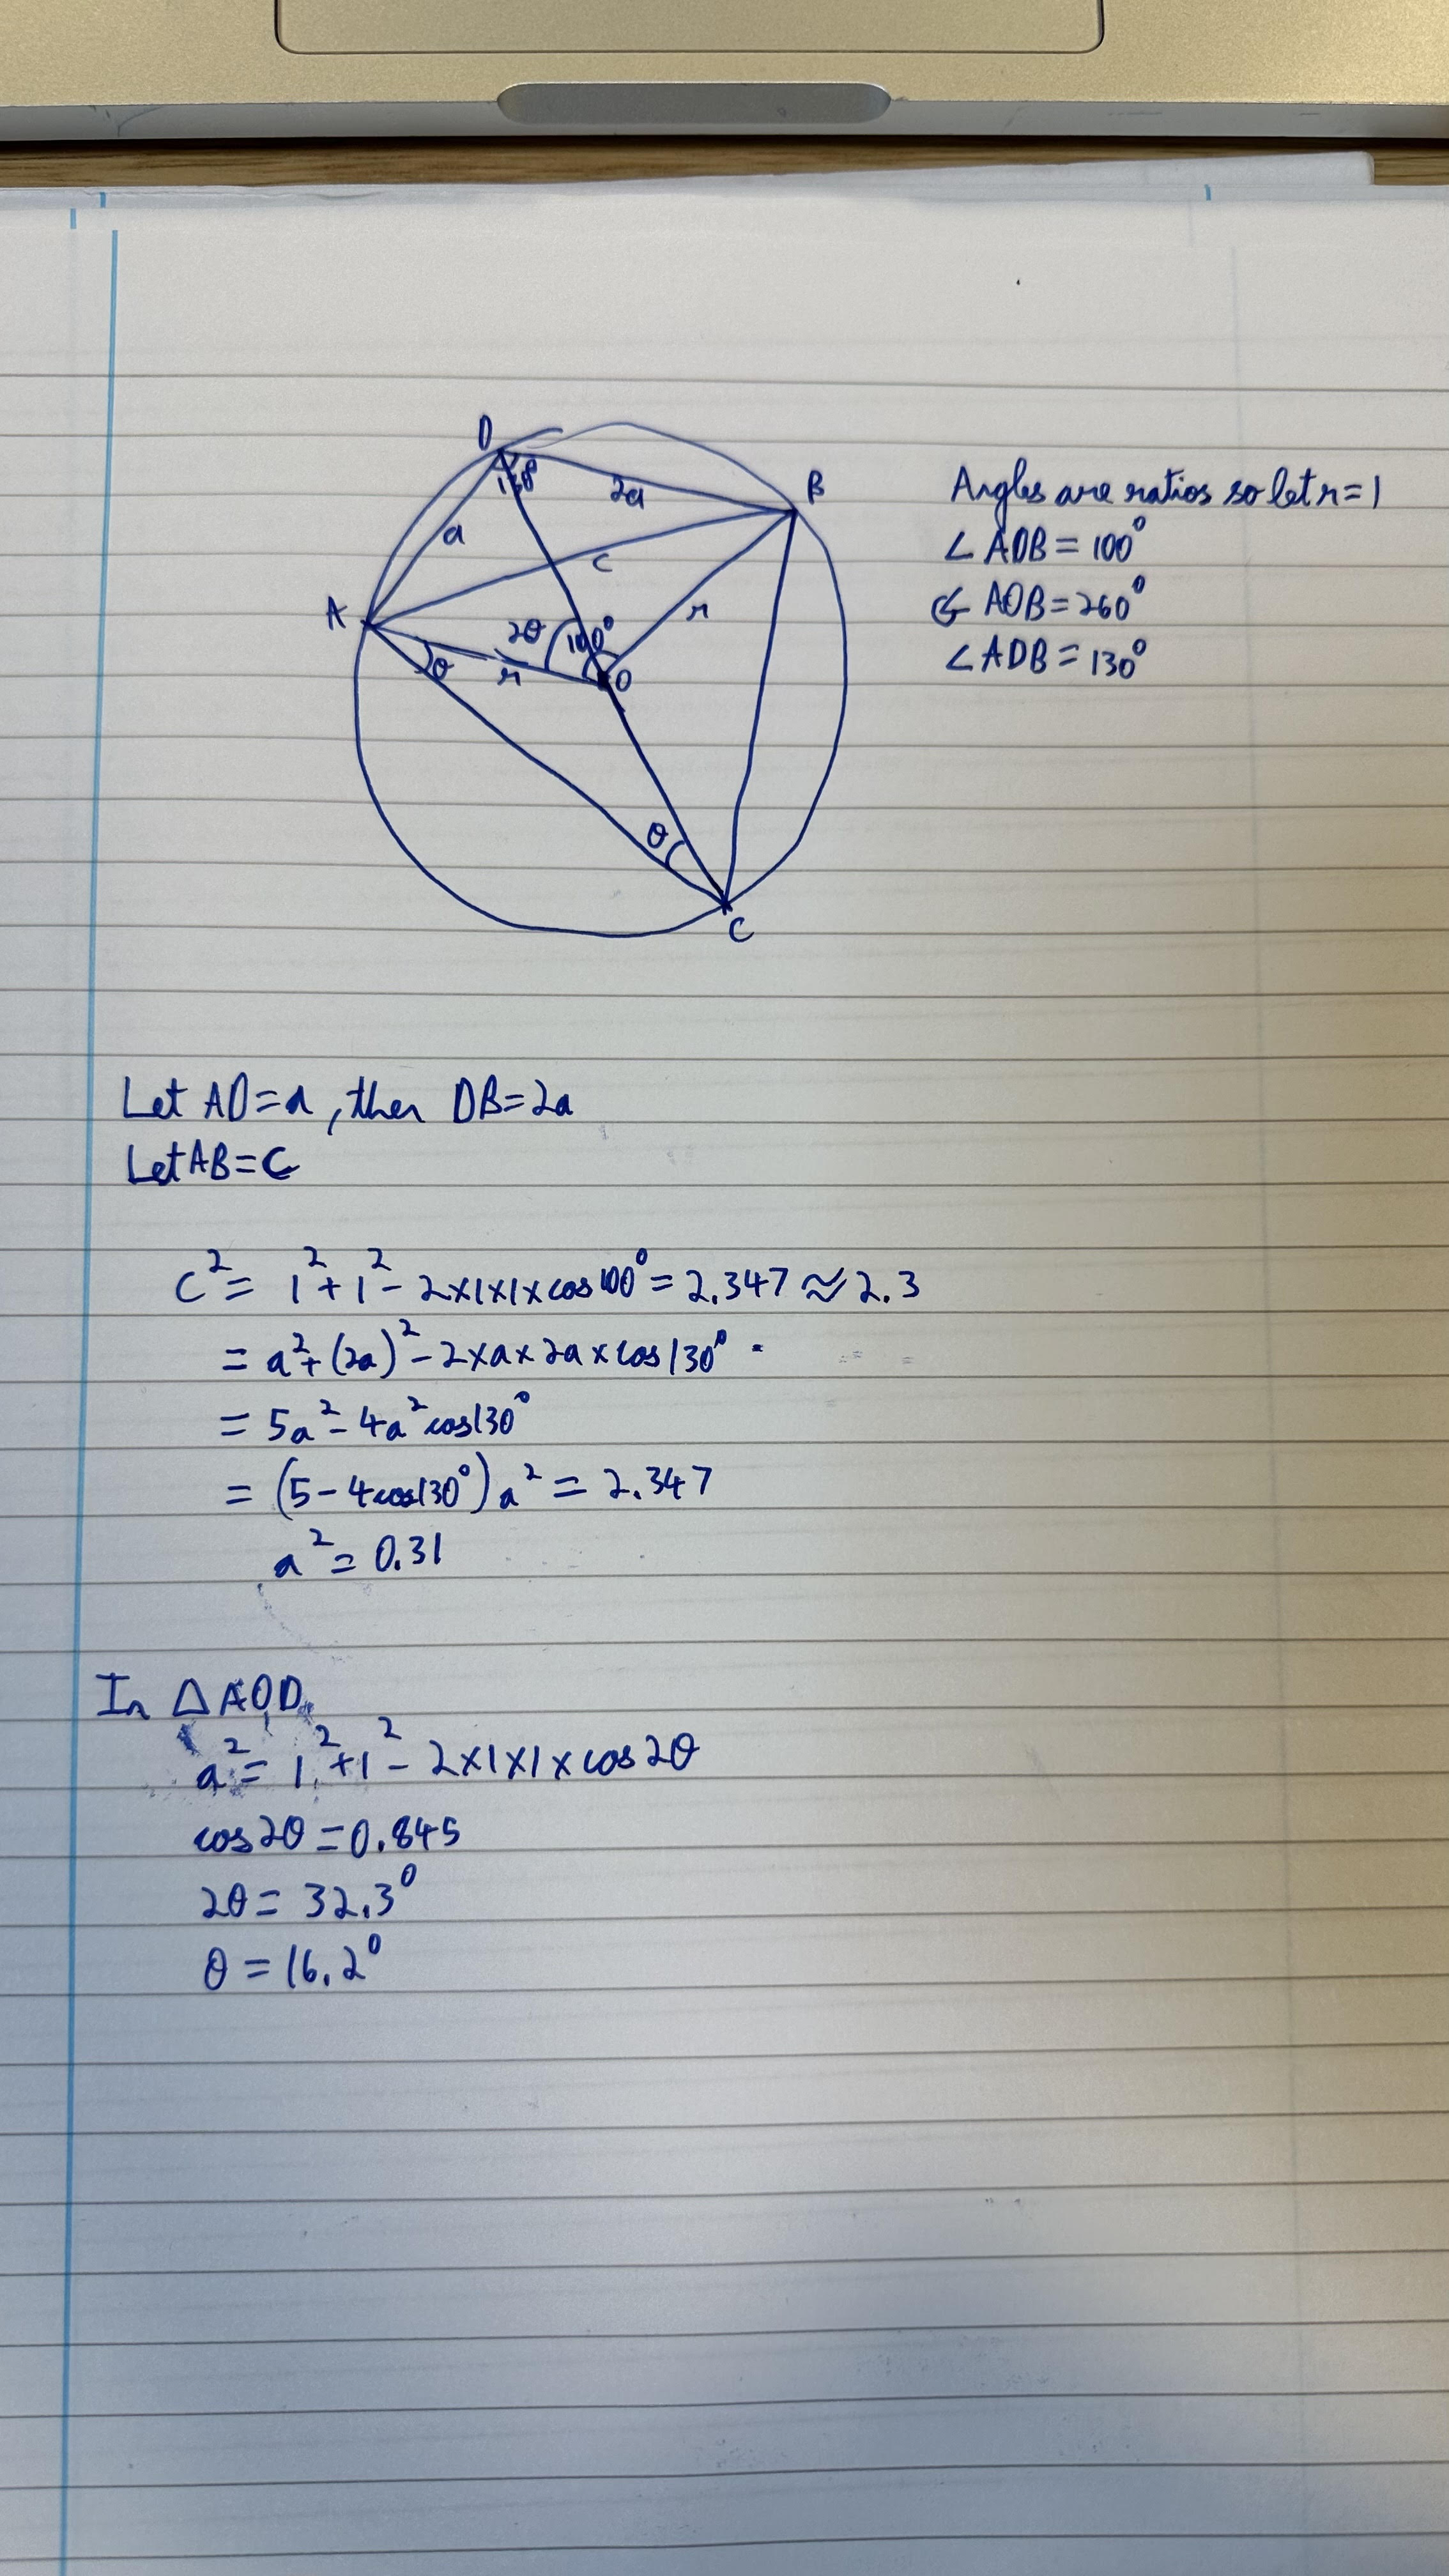 D
B
130°
2a
a
c
A
2θ
100°
r
θ
r
O
θ
C
Angles are ratios so let r=1
∠AOB = 100°
AOB = 260°
∠ADB = 130°
Let AD = a, then DB = 2a
Let AB = C
C² = 1² + 1² - 2×1×1×cos100° = 2.347 ≈ 2.3
= a² + (2a)² - 2×a×2a×cos130°
= 5a² - 4a²cos130°
= (5 - 4cos130°)a² = 2.347
a² = 0.31
In △AOD,
a² = 1² + 1² - 2×1×1×cos2θ
cos2θ = 0.845
2θ = 32.3°
θ = 16.2°